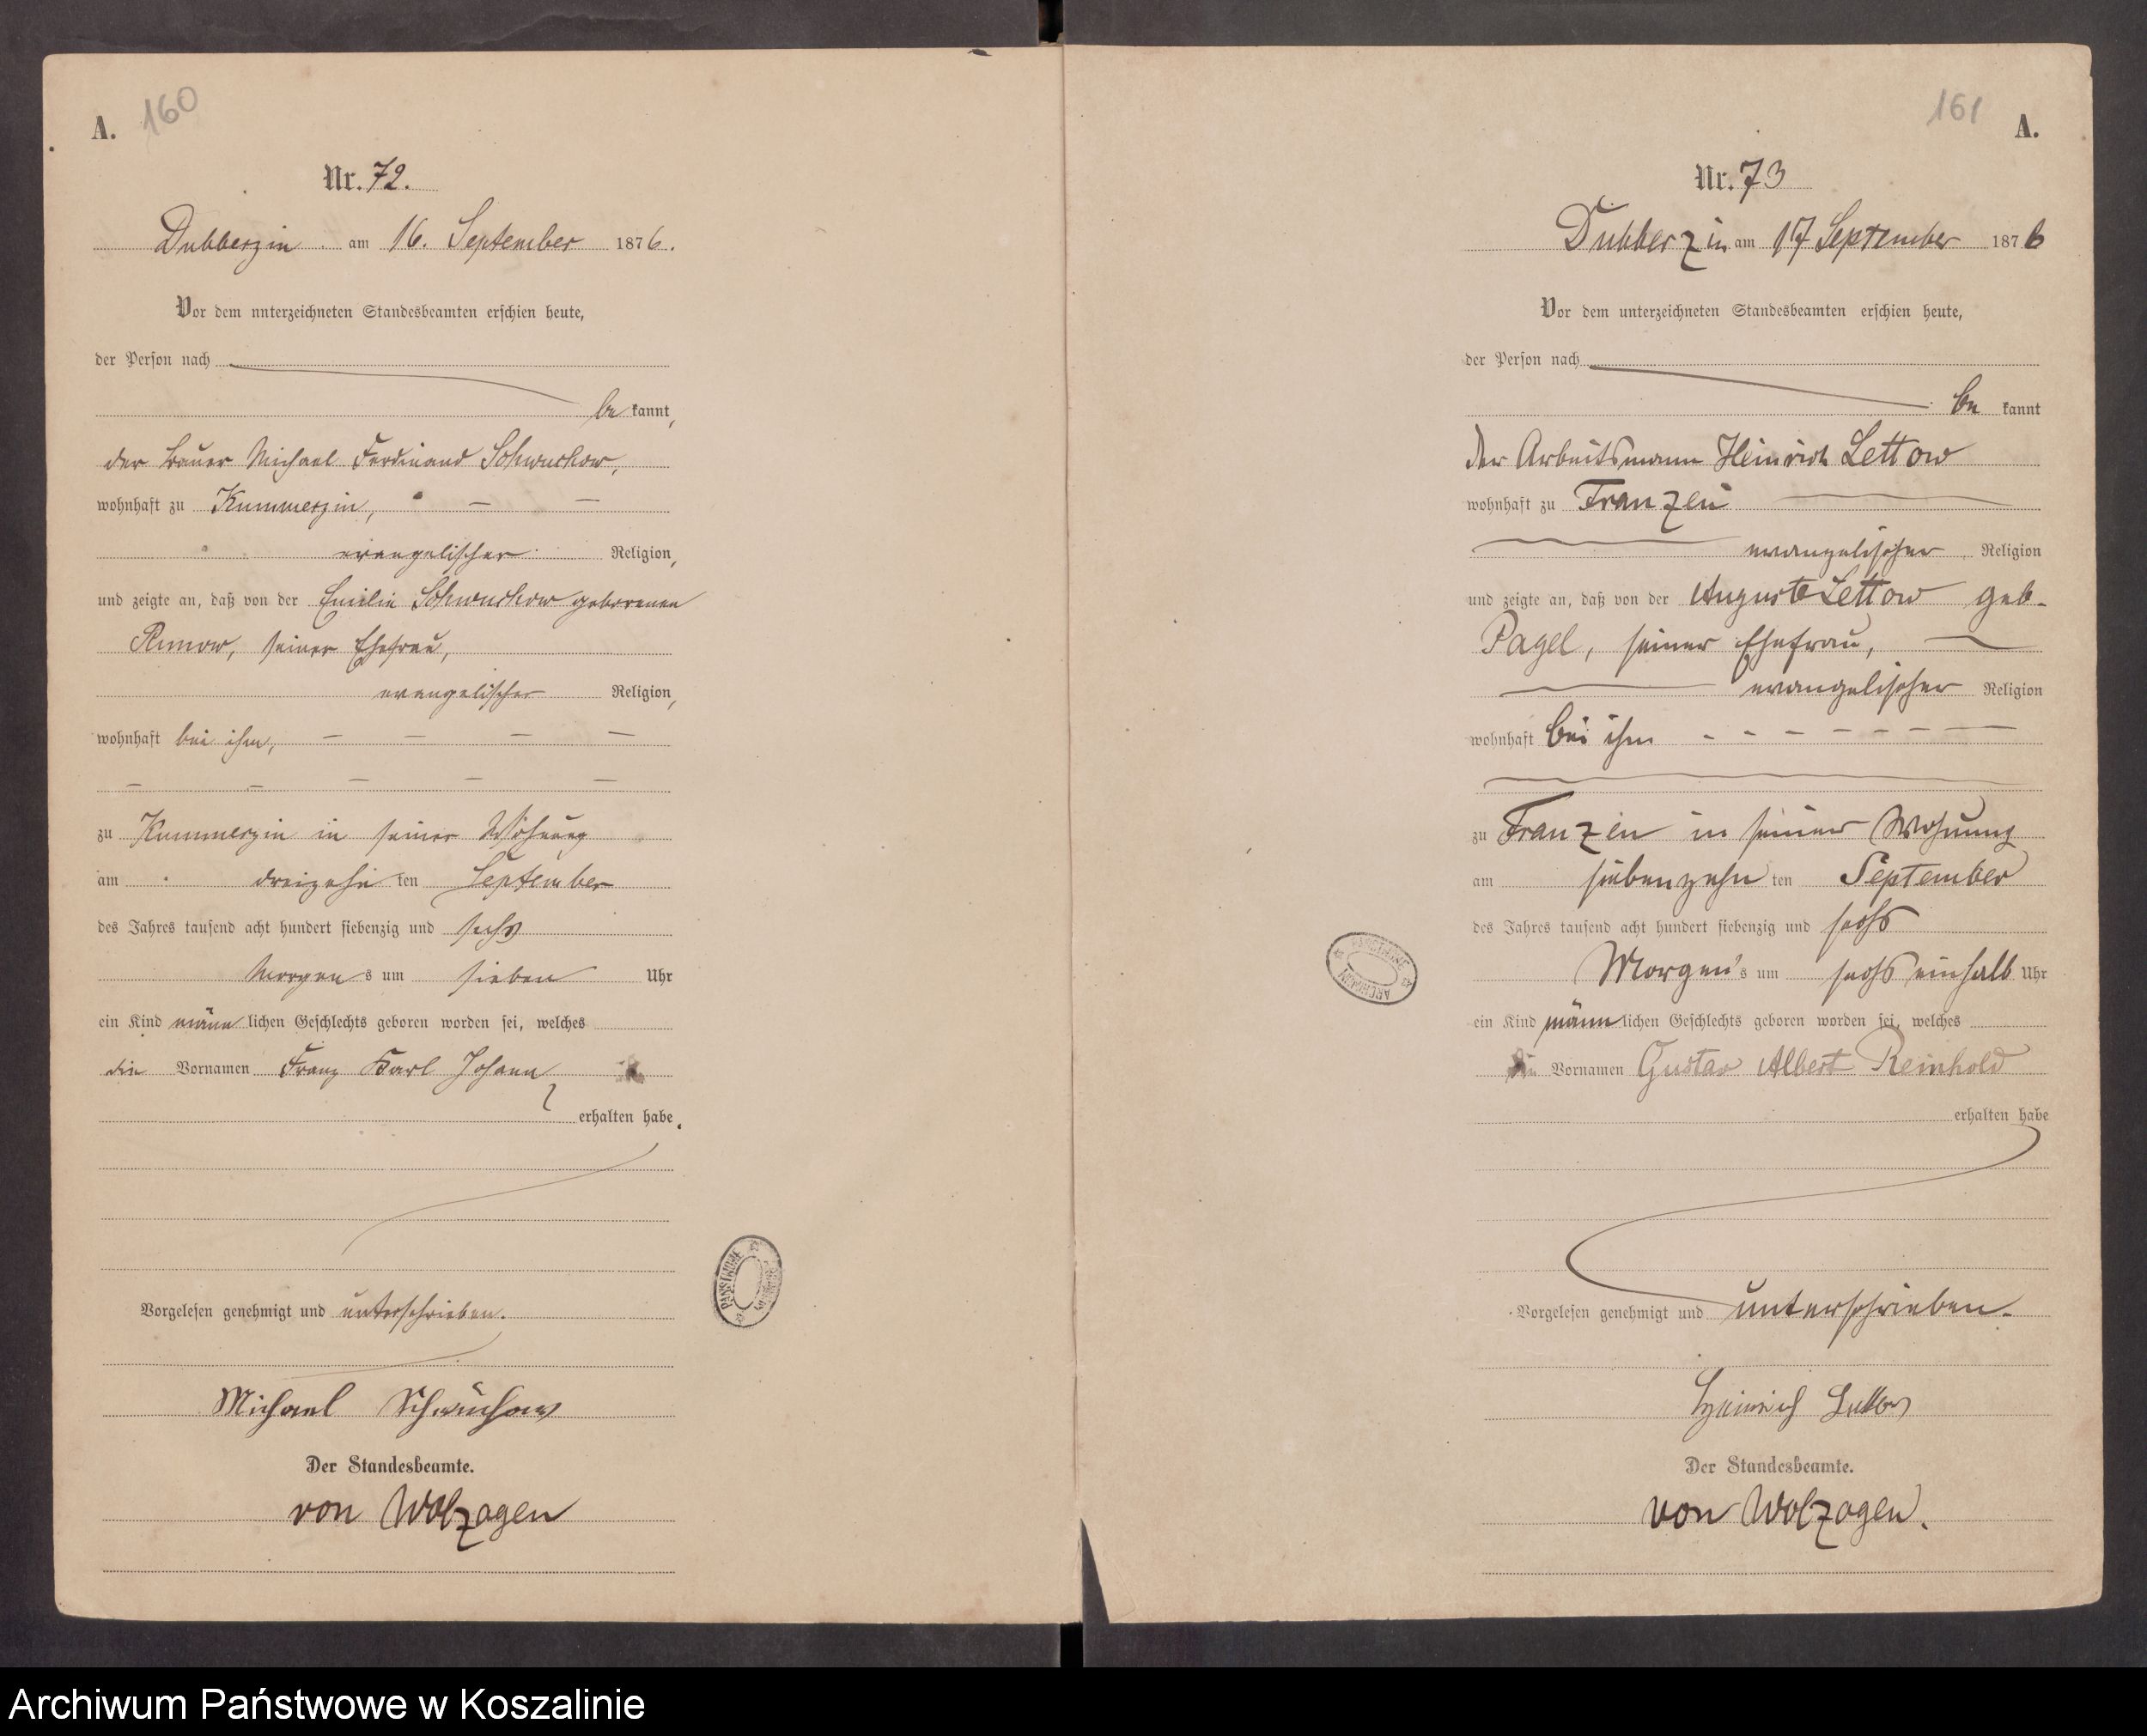 A. 160
Nr. 72.
Dubberzin am 16. September 1876.
Vor dem unterzeichneten Standesbeamten erschien heute,
der Person nach
be kannt,
der Bauer Michael Ferdinand Schwuchow,
wohnhaft zu Kummerzin,
evangelischer Religion,
und zeigte an, daß von der Emilie Schwuchow geborenen
Rumow, seiner Ehefrau,
evangelischer Religion,
wohnhaft bei ihm,
zu Kummerzin in seiner Wohnung
am dreizehn ten September
des Jahres tausend acht hundert siebenzig und sechs
Morgen s um sieben Uhr
ein Kind männ lichen Geschlechts geboren worden sei, welches
die Vornamen Franz Karl Johann
erhalten habe.
Vorgelesen genehmigt und unterschrieben.
Michael Schwuchow
Der Standesbeamte.
von Wolzogen
PAŃSTWOWE
161 A.
Nr. 73
Dubberzin am 17 September 1876
Vor dem unterzeichneten Standesbeamten erschien heute,
der Person nach
be kannt
der Arbeitsmann Heinrich Lettow
wohnhaft zu Franzen
evangelischer Religion
und zeigte an, daß von der Auguste Lettow geb.
Pagel, seiner Ehefrau,
evangelischer Religion
wohnhaft bei ihm
zu Franzen in seiner Wohnung
am siebenzehn ten September
des Jahres tausend acht hundert siebenzig und sechs
Morgen's um sechs einhalb Uhr
ein Kind männ lichen Geschlechts geboren worden sei, welches
die Vornamen Gustav Albert Reinhold
erhalten habe
Vorgelesen genehmigt und unterschrieben.
Heinrich Lettow
Der Standesbeamte.
von Wolzogen.
PAŃSTWOWE ARCHIWUM
Archiwum Państwowe w Koszalinie